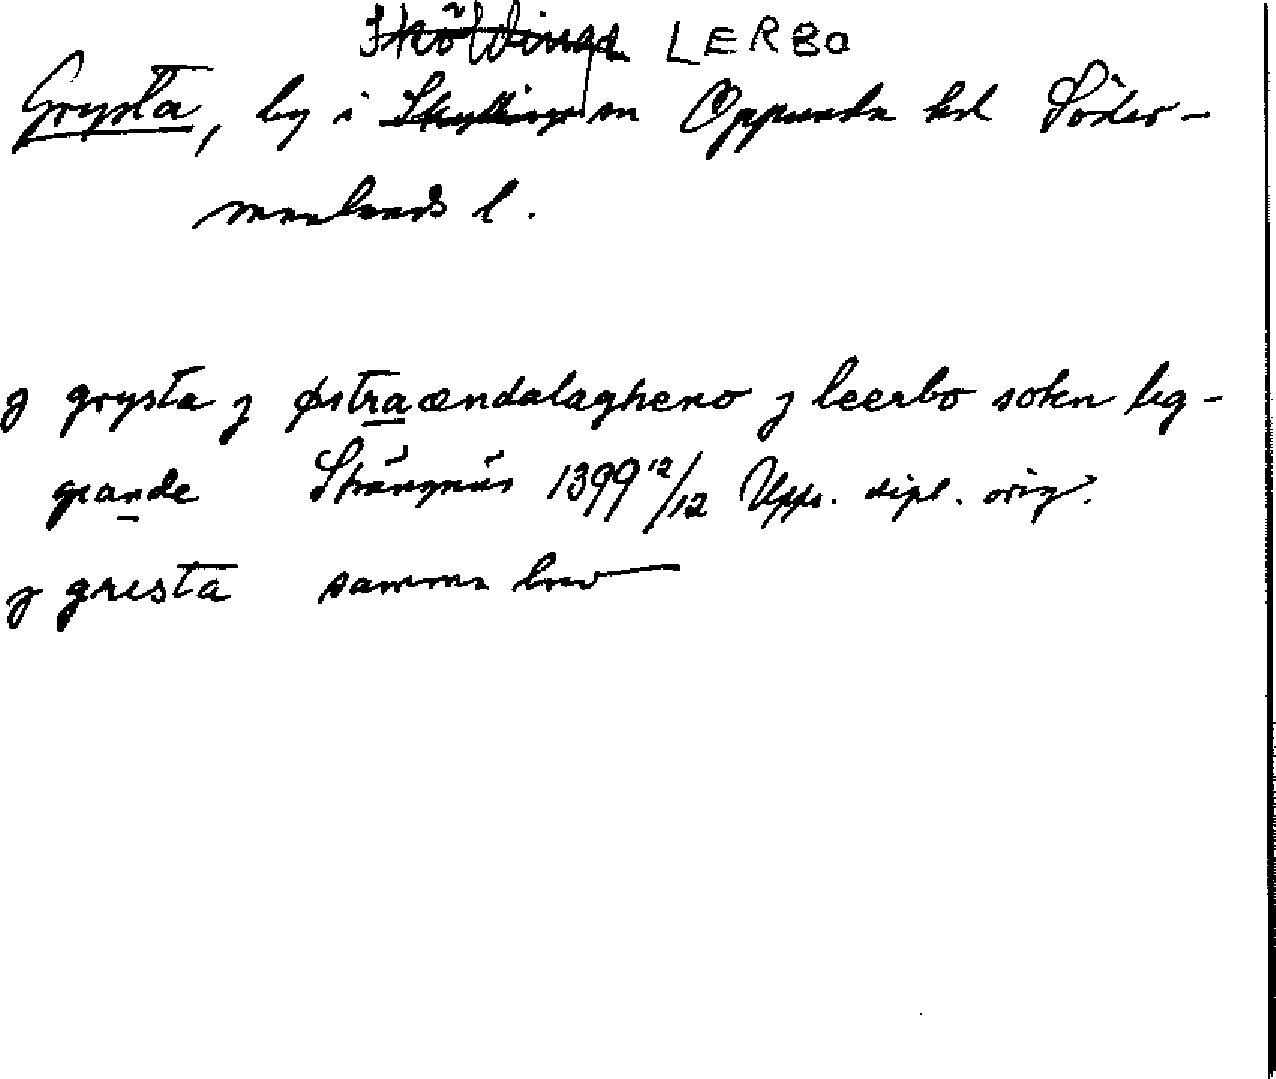 Sköldinge LERBO
Grysta, by i Skyllinge sn Oppunda hd Söder-
manlands l.
j grysta j østraændalagheno j leerbo sokn lig-
grande Strängnäs 1399 12/12 Upps. dipl. orig.
j gresta samma brev